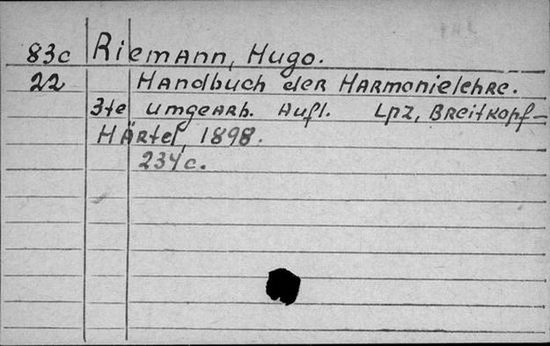 83c Riemann, Hugo.
22 Handbuch der Harmonielehre.
3te umgearb. Aufl. Lpz, Breitkopf-
Härtel, 1898.
234c.